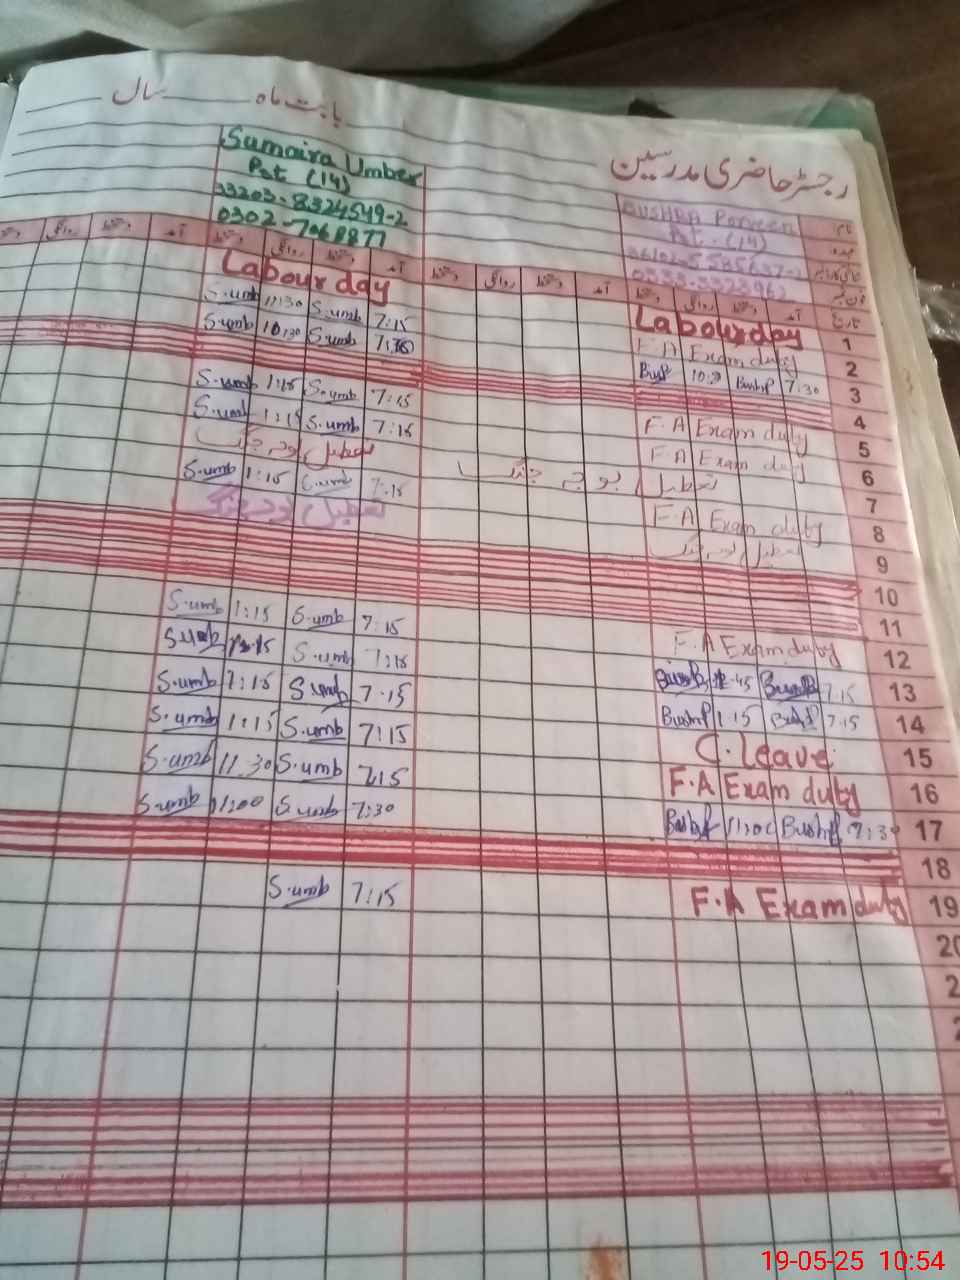 رجسٹر حاضری مدرسین
بابت ماه ______ سال ______
Samaira Umber
Pst (14)
33203-8324549-2
BUSHRA Parveen
Pst. (14)
نام
عہدہ
تاریخ آمد دستخط روانگی دستخط آمد دستخط روانگی دستخط آمد دستخط روانگی دستخط
1 Labour day Labour day
2 F.A Exam duty 7:15 S.umb 11:30 S.umb
3 7:30 Bushf Bushf S.umb 10:30 S.umb
4
5 F.A Exam duty 7:15 S.umb 1:15 S.umb
6 F.A Exam duty 7:15 S.umb 1:15 S.umb
7 تعطیل بوجہ جنگ تعطیل بوجہ جنگ
8 F.A Exam duty 7:15 S.umb 1:15 S.umb
9 تعطیل بوجہ جنگ تعطیل بوجہ جنگ
10
11
12 F.A Exam duty 7:15 S.umb 1:15 S.umb
13 7:15 Bushf Bushf 7:15 S.umb S.umb
14 7:15 Bushf 1:15 Bushf 7:15 S.umb 1:15 S.umb
15 C.leave 7:15 S.umb 1:15 S.umb
16 F.A Exam duty 7:15 S.umb 11:30 S.umb
17 7:30 Bushf 11:00 Bushf 7:30 S.umb 11:00 S.umb
18
19 F.A Exam duty 7:15 S.umb
19-05-25 10:54